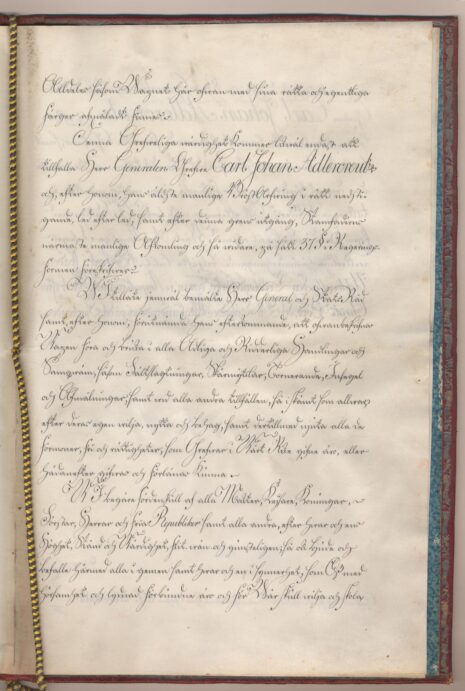 Alldeles såsom Wapnet här ofvan med sina rätta och egentliga
färger afmåladt finnes.
Denna Grefveliga värdighet kommer likväl endast att
tillfalla Herr Generalen Grefve Carl Johan Adlercreutz
och, efter honom, hans äldste manlige Bröst-Arfvinge i rätt nedsti-
gande led efter led, samt efter denna grens utgång, Stamfadrens
närmaste manliga Afkomling och så vidare, på sätt 37 §. Regerings
formen föreskrifver.
WI tillåte jemväl bemälte Herr General och Stats Råd
samt, efter honom, förutnämde hans efterkommande, att ofvanbeskrefne
Vapen föra och bruka i alla Adliga och Ridderliga Samlingar och
såsom Fältslagtningar, Skärmytslar, Torneranden, Insegel
och Afmålningar, samt vid alla andra tillfällen, så i skämt som allvar,
efter deras egen vilja, nytta och behag, samt dertill med njuta alla de
förmoner, fri och rättigheter, som Grefvar i Vårt Rike gifne äro, eller
hädanefter gifvas och förlänas kunna.
WI begäre fördenskull af alla Magter, Kejsare, Konungar,
Förstar, Herrar och fria Republiker samt alla andra, efter hvars och ens
Höghet, Stånd och Värdighet, och bjude och
befalle härmed alla i gemen samt hvar och en i synnerhet, som Oss med
hörsamhet och lydnad förbundne äro och för Vår skull vilja och skola